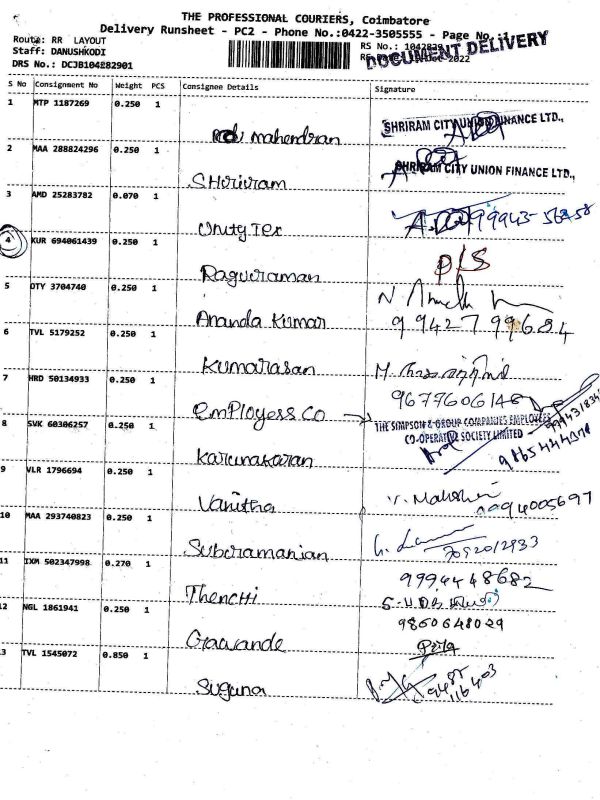 THE PROFESSIONAL COURIERS, Coimbatore
Delivery Runsheet - PC2 - Phone No.:0422-3505555 - Page No.
Route: RR LAYOUT
Staff: DANUSHKODI
DRS No.: DCJB104282901
DOCUMENT DELIVERY
S No Consignment No Weight PCS Consignee Details Signature
1 MTP 1187269 0.250 1
mahendran SHRIRAM CITY UNION FINANCE LTD.,
2 MAA 288824296 0.250 1
Shriram SHRIRAM CITY UNION FINANCE LTD.,
3 AMD 25283782 0.070 1
Unity Tex
4 KUR 694061439 0.250 1
Raguraman P/S
5 OTY 3704740 0.250 1
Ananda Kumar
6 TVL 5179252 0.250 1
Kumarasan
7 HRD 50134933 0.250 1
EmPloyess Co THE SIMPSON & GROUP COMPANIES EMPLOYEES
CO-OPERATIVE SOCIETY LIMITED
8 SVK 60306257 0.250 1
Karunakaran
9 VLR 1796694 0.250 1
Vanitha
10 MAA 293740823 0.250 1
Subramanian
11 IXM 502347998 0.270 1
Thenchi 9994448682
12 NGL 1861941 0.250 1
Gawande 9860648029
TVL 1545072 0.850 1
Suguna